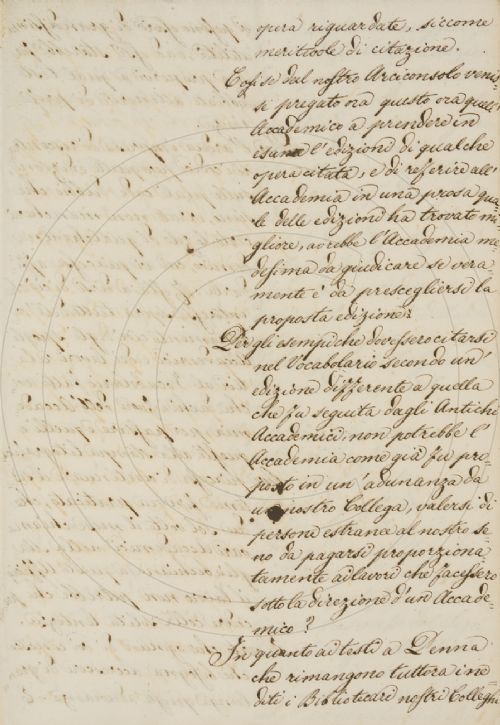 opera riguardate, siccome
meritevole di citazione.
Cosi se dal nostro Arciconsolo venis=
si pregato ora questo ora quell'
Accademico a prendere in
isame l'edizioni di qualche
opera citata, e di referire all'
Accademia in una prosa qua=
le delle edizioni ha trovato mi=
gliore, avrebbe l'Accademia me
desima da giudicare se vera
mente é da prescegliersi la
proposta edizione?
Per gli esempi che dovessero citarsi
nel Vocabolario secondo un'
edizione differente a quella
che fu seguita dagli Antichi
Accademici, non potrebbe l'
Accademia come già fu pro=
posto in un'adunanza da
un nostro Collega, valersi di
persone estranee al nostro se
no da pagarsi proporziona
tamente ai lavori che facessero
sotto la direzione d'un Accade=
mico?
In quanto ai testi a Penna
che rimangono tuttora ine=
diti i Bibliotecari nostri Colleghi